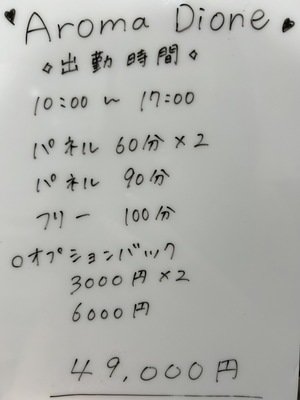 ♥ Aroma Dione ♥
◇出勤時間◇
10:00 〜 17:00
パネル 60分 ×2
パネル 90分
フリー 100分
○オプションバック
3000円×2
6000円
49,000円